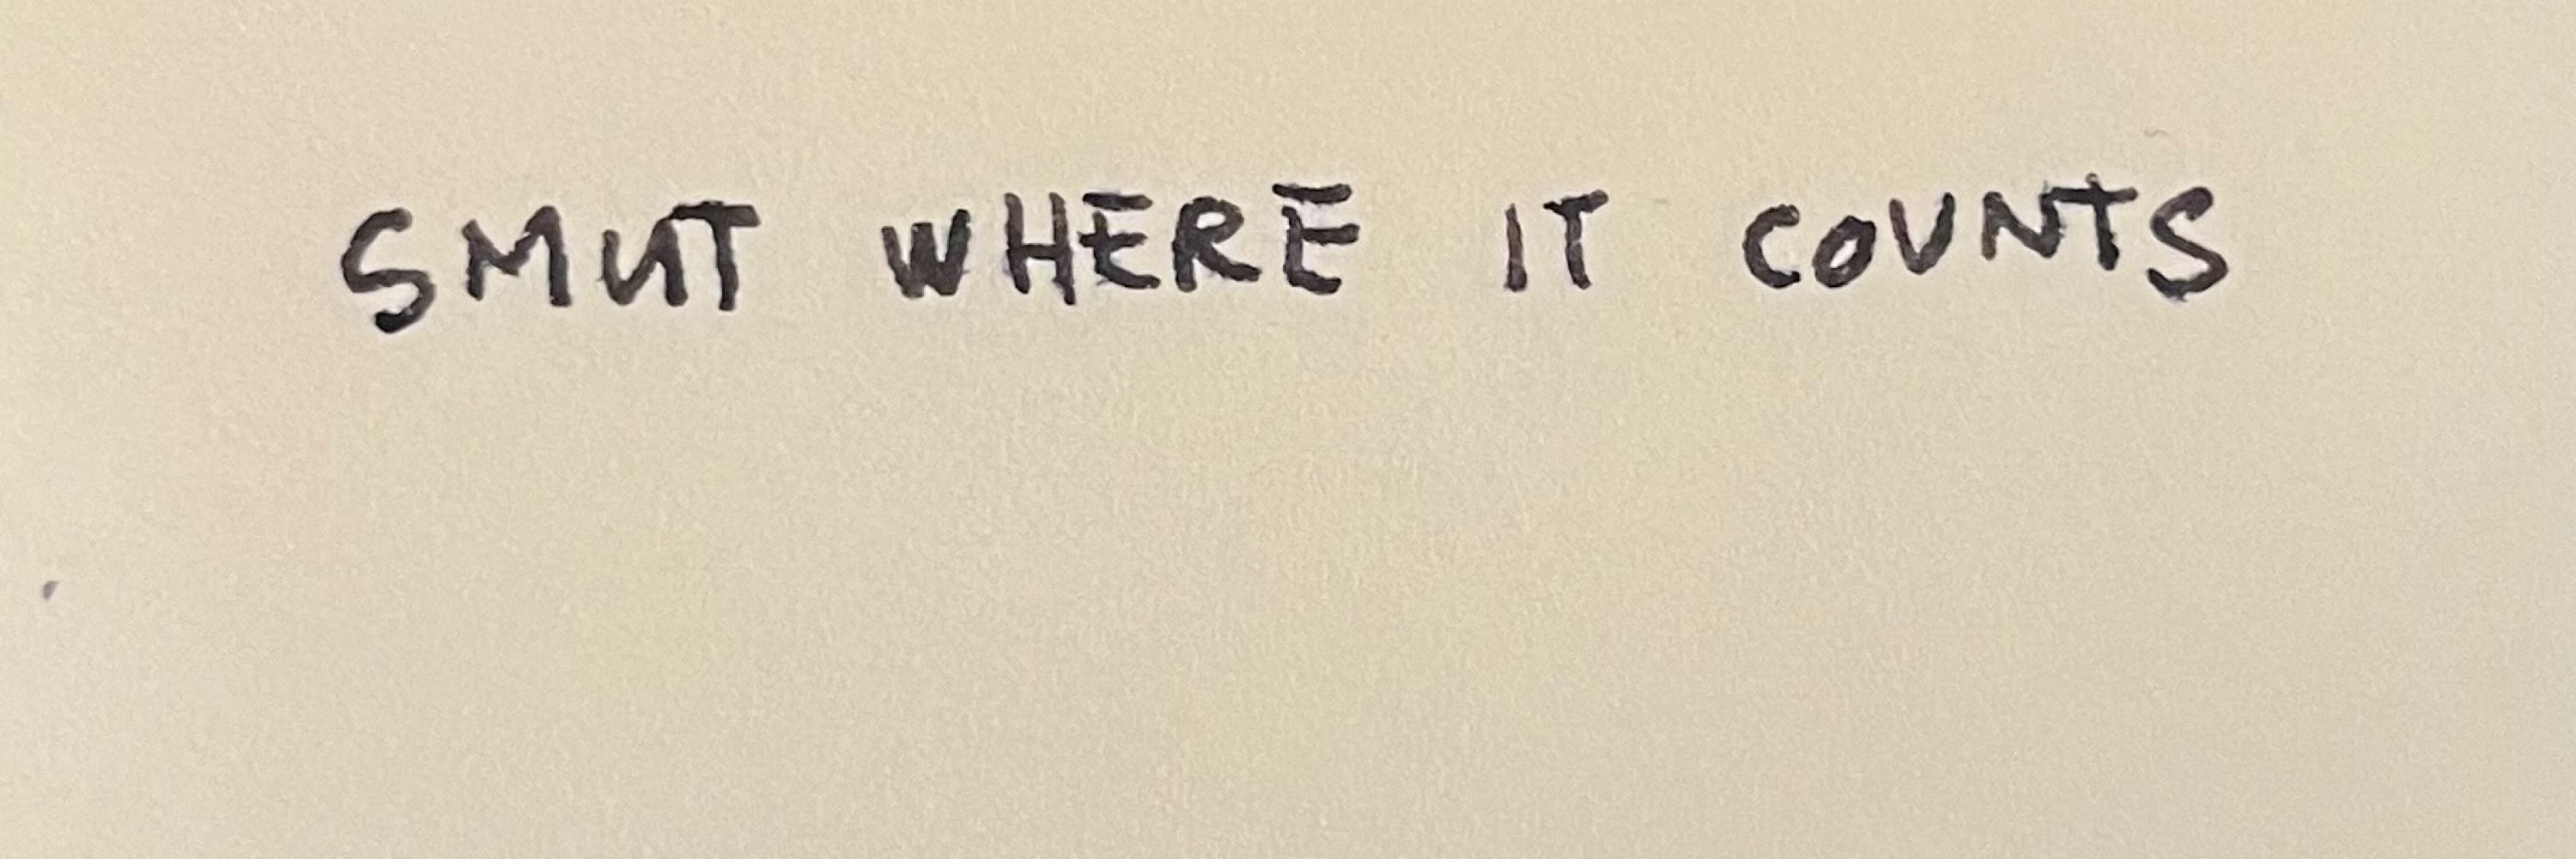 SMUT WHERE IT COUNTS